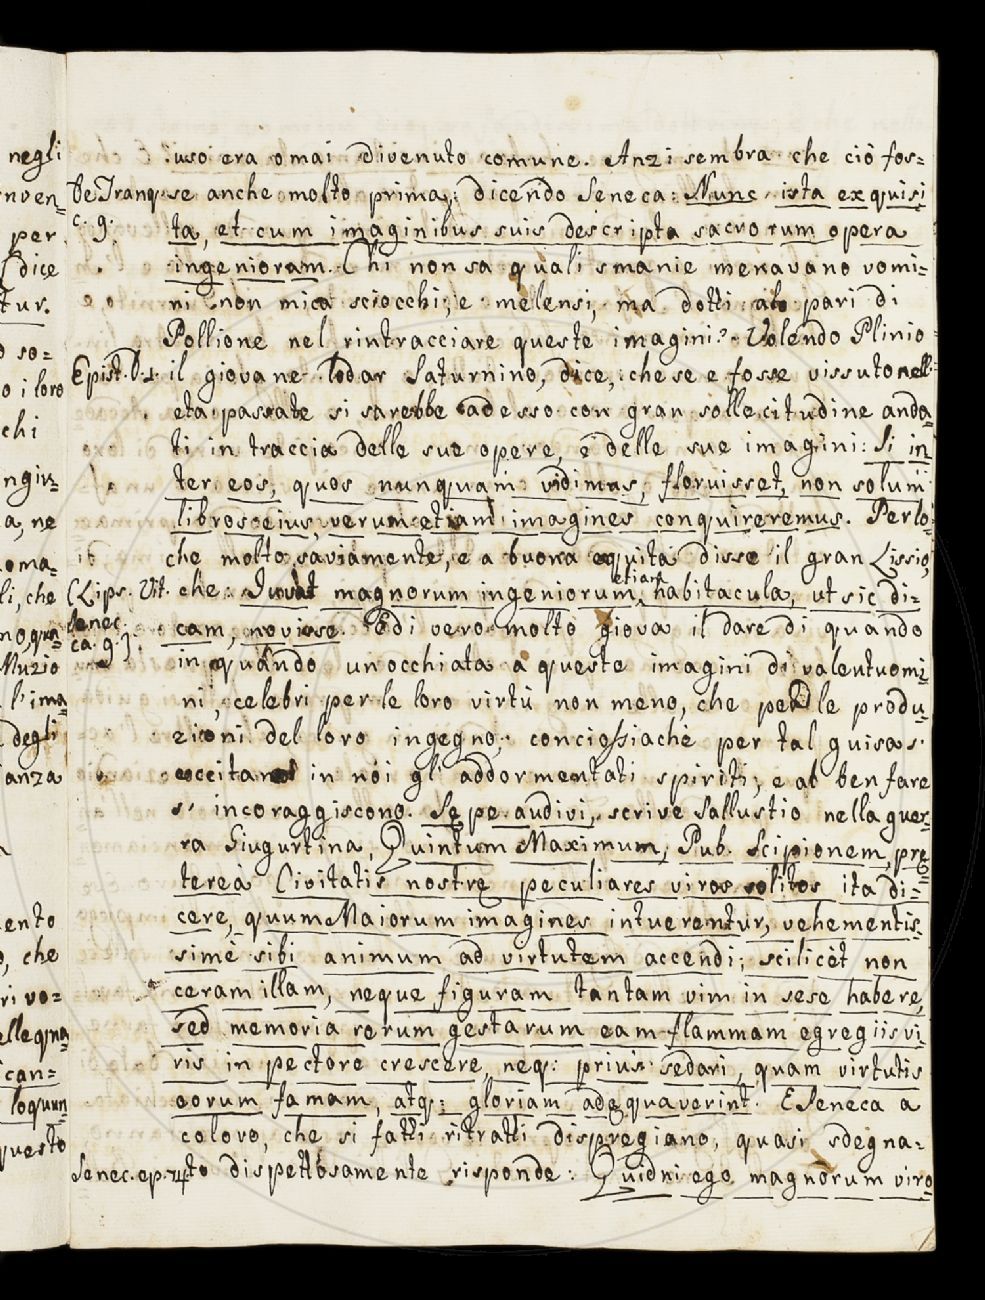 negli
nven=
per
dice
tur.
o so=
o i loro
chi
ngiu=
a, ne
oma=
li, che
no, qua=
Muzio
l'ima=
degli
anza
ento
o, che
ri vo=
elle qua=
can=
loquun
questo
uso era omai divenuto comune. Anzi sembra che ciò fos=
De Tranq. se anche molto prima, dicendo Seneca: Nunc ista exquisi
c. 9. ta, et cum imaginibus suis descripta sacrorum opera
ingenioram. Chi non sa quali smanie menavano vomi=
ni non mica sciocchi, e melensi, ma dotti al pari di
Pollione nel rintracciare queste imagini? Volendo Plinio
Epist. l. 1. il giovane lodar Saturnino, dice, che se e fosse vissuto nell'
eta passate si sarebbe adesso con gran sollecitudine anda=
ti in traccia delle sue opere, e delle sue imagini: Si in=
ter eos, quos nunquam vidimus, floruisset, non solum
libros eius, verum etiam imagines conquireremus. Perlo=
che molto saviamente, e a buona equita disse il gran Lissio,
(Lips. Vit. che: Juvat magnorum ingeniorum etiam habitacula, ut sic di=
Senec. cam, novisse. Ed i vero molto giova il dare di quando
ca. 9.). in quando un occhiata a queste imagini di valentuomi=
ni, celebri per le loro virtù non meno, che per le produ=
zioni del loro ingegno; conciossiachè per tal guisa s'
eccitano in noi gli addormentati spiriti, e al ben fare
s' incoraggiscono. Sępe audivi, scrive Sallustio nella guer=
ra Giugurtina, Quintum Maximum, Pub. Scipionem, prę=
tereà Civitatis nostrę peculiares viros solitos ita di=
cere, quum Maiorum imagines intuerentur, vehementis=
simè sibi animum ad virtutem accendi; scilicèt non
ceram illam, neque figuram tantam vim in sese habere,
sed memoria rerum gestarum eam flammam egregiis vi=
ris in pectore crescere, neq: prius sedari, quam virtutis
eorum famam, atq: gloriam adęquaverint. E Seneca a
coloro, che si fatti ritratti dispregiano, quasi sdegna=
Senec. ep. 74 to dispettosamente risponde: Quidni ego magnorum viro=